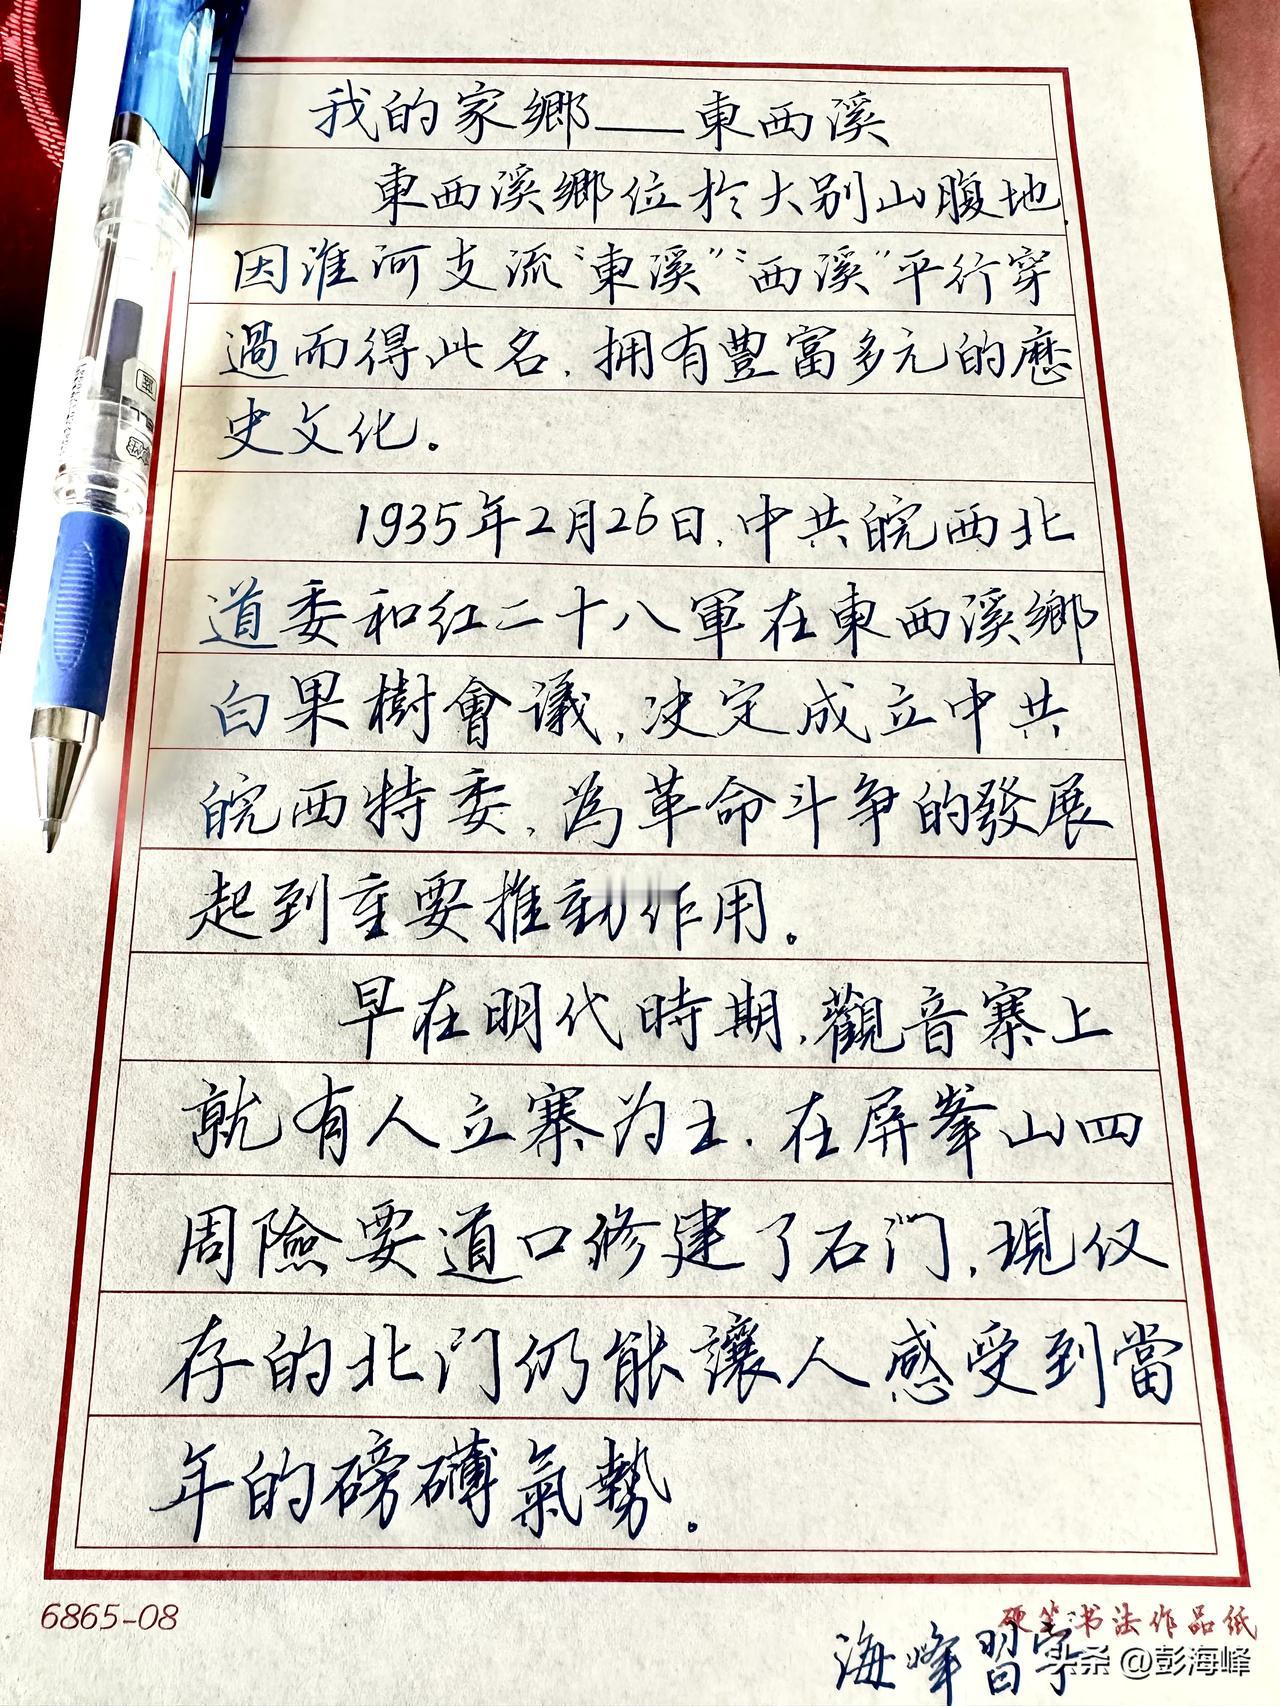 我的家鄉——東西溪
東西溪鄉位於大别山腹地,
因淮河支流“東溪”“西溪”平行穿
過而得此名,拥有豐富多元的歷
史文化。
1935年2月26日,中共皖西北
道委和红二十八軍在東西溪鄉
白果樹會議,决定成立中共
皖西特委,為革命斗争的發展
起到重要推動作用。
早在明代時期,觀音寨上
就有人立寨为主.在屏峯山四
周險要道口修建了石门,現仅
存的北门仍能讓人感受到當
年的磅礴氣勢。
6865-08
硬笔书法作品纸
海峰習字
头条 @彭海峰